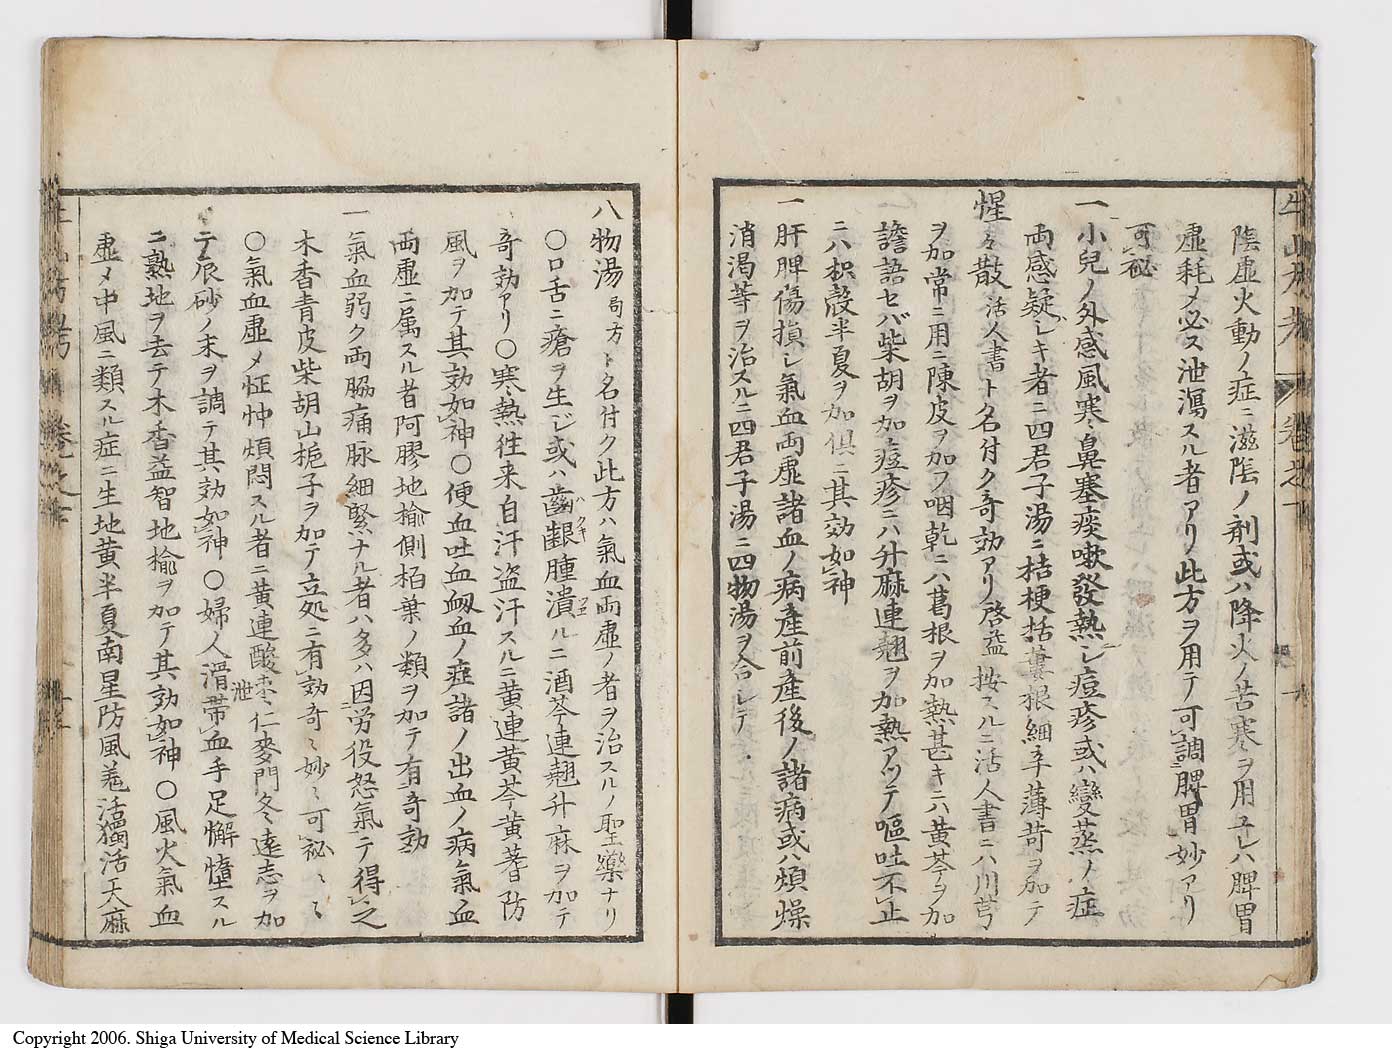 陰虚火動ノ症ニ滋陰ノ剤或ハ降火ノ苦寒ヲ用ユレハ脾胃
虚耗メ必ス泄瀉スル者アリ此方ヲ用テ可調脾胃妙アリ
可秘
一小兒ノ外感風寒鼻塞痰嗽發熱シ痘疹或ハ變蒸ノ症
両感疑シキ者ニ四君子湯ニ桔梗括蔞根細辛薄苛ヲ加テ
惺々散活人書ト名付ク奇効アリ啓益按スルニ活人書ニハ川芎
ヲ加常ニ用ニ陳皮ヲ加フ咽乾ニハ葛根ヲ加熱甚キニハ黄芩ヲ加
譫語セバ柴胡ヲ加痘疹ニハ升麻連翹ヲ加熱アツテ嘔吐不止
ニハ枳殻半夏ヲ加倶ニ其効如神
一肝脾傷損シ氣血両虚諸血ノ病産前産後ノ諸病或ハ煩燥
消渇等ヲ治スルニ四君子湯ニ四物湯ヲ合シテ
八物湯局方ト名付ク此方ハ氣血両虚ノ者ヲ治スルノ聖藥ナリ
〇口舌ニ瘡ヲ生ジ或ハ齒齦腫潰ルニ酒芩連翹升麻ヲ加テ
奇効アリ〇寒熱徃来自汗盗汗スルニ黄連黄芩黄蓍防
風ヲ加テ其効如神〇便血吐血衂血ノ症諸ノ出血ノ病氣血
両虚ニ属スル者阿膠地楡側栢葉ノ類ヲ加テ有奇効
一氣血弱ク両脇痛脉細緊ナル者ハ多ハ因労役怒氣テ得之
木香青皮柴胡山梔子ヲ加テ立処ニ有効奇〻妙〻可秘〻〻
〇氣血虚メ怔忡煩悶スル者ニ黄連酸枣仁麥門冬遠志ヲ加
テ辰砂ノ末ヲ調テ其効如神〇婦人滑帯血手足懈墮スル
泄
ニ熟地ヲ去テ木香益智地楡ヲ加テ其効如神〇風火氣血
虚メ中風ニ類スル症ニ生地黄半夏南星防風羗活獨活天麻